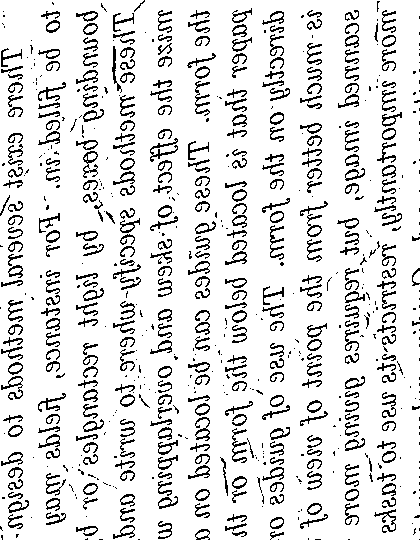 There exist several methods to design
to be filled-in. For instance, fields may
bounding boxes, by light rectangles or b
These methods specify where to write and
mize the effect of skew and overlapping w
the form. These guides can be located on a
paper that is located below the form or th
directly on the form. The use of guides on
is much better from the point of view of
scanned image, but requires giving more
more importantly, restricts its use to tasks